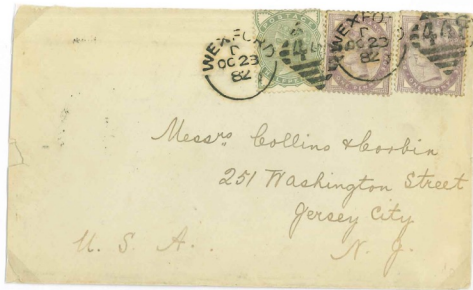 WEXFORD
C
OC 23
82
WEXFORD
C
OC 23
82
Messrs Collins & Corbin
251 Washington Street
Jersey City
U. S. A.. N. J.